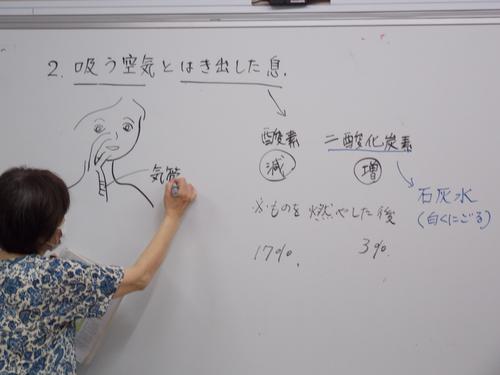 2. 吸う空気とはき出した息.
酸素 二酸化炭素
減 増
気管
石灰水
(白くにごる)
※ものを燃やした後
17%. 3%.